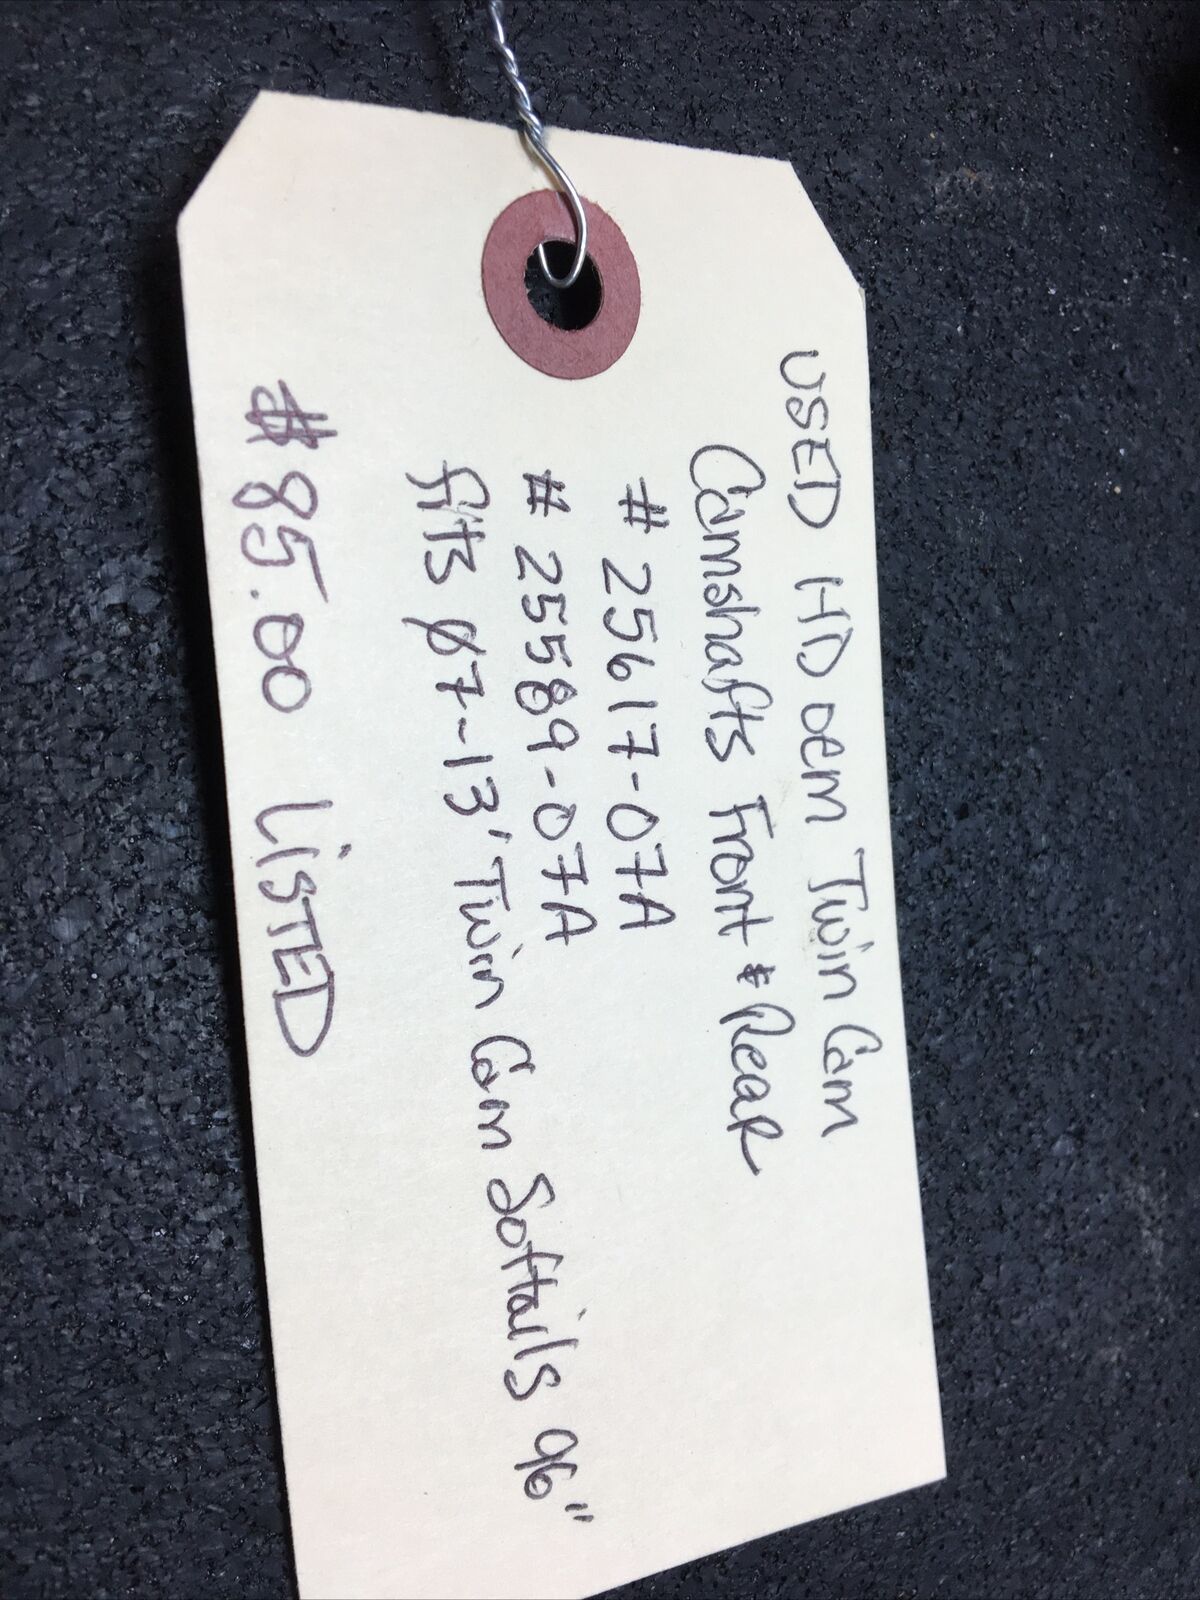 USED HD OEM Twin Cam
Camshafts Front & Rear
# 25617-07A
# 25589-07A
fits 07-13' Twin Cam Softails 96"
$85.00 LiSTED